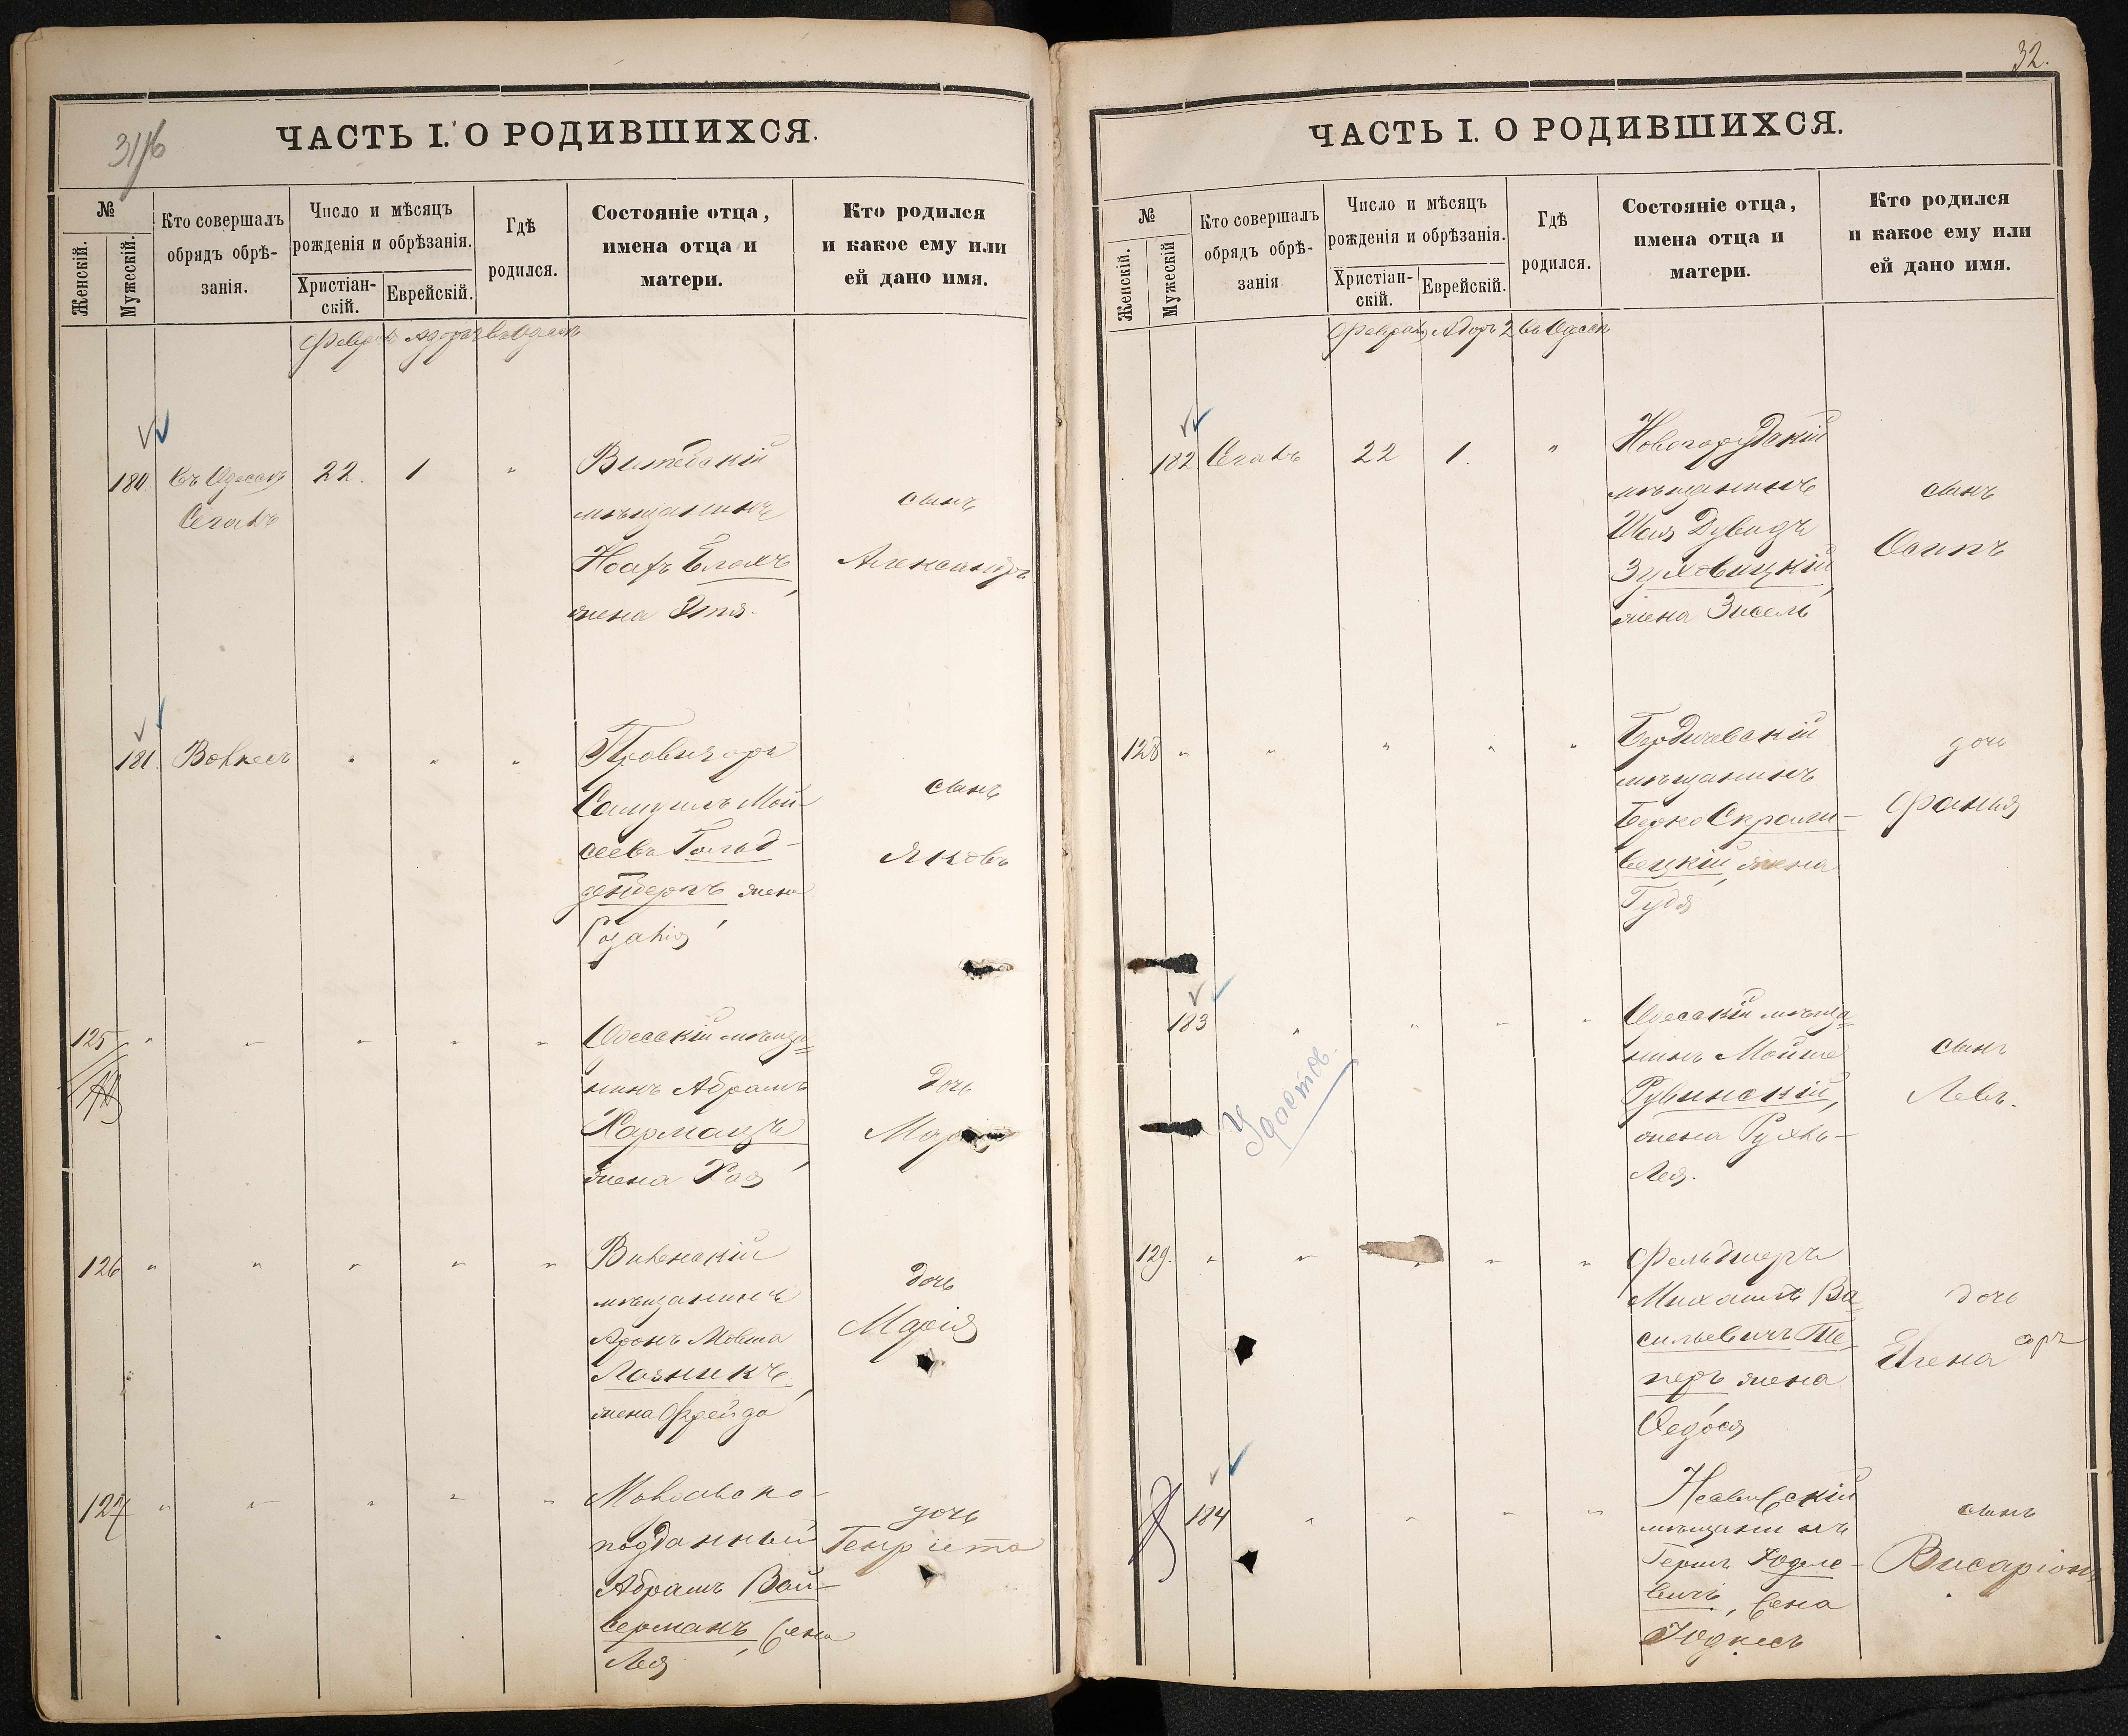 ЧАСТЬ I. О РОДИВШИХСЯ.
№
Женскій.
Мужескій.
Кто совершалъ
обрядъ обрѣ-
занія.
Число и мѣсяцъ
рожденія и обрѣзанія.
Христіан-
скій.
Еврейскій.
Гдѣ
родился.
Состояніе отца,
имена отца и
матери.
Кто родился
и какое ему или
ей дано имя.
180. въ Одессѣ 22. 1 „
Сегалъ
мѣщанинъ
жена Этя.
сынъ
Александръ
181. „ „ „
Провизоръ
Самуилъ Мой-
сеевъ Гольд-
денбергъ жена
Розалія
сынъ
Яковъ
125 „ „ „ „ „
Одесскій мѣща=
нинъ Абрамъ
Хармацъ
жена Хая
дочь
126 „ „ „ „ „
Виленскій
мѣщанинъ
Аронъ Мовша
Лозникъ,
жена Фрейда
дочь
Марія
127 „ „ „ „ „
подданный
Абрамъ Вай-
серманъ, жена
Лея
дочь
Генріета
32.
ЧАСТЬ I. О РОДИВШИХСЯ.
№
Женскій.
Мужескій
Кто совершалъ
обрядъ обрѣ-
занія
Число и мѣсяцъ
рожденія и обрѣзанія.
Христіан-
скій.
Еврейскій.
Гдѣ
родился.
Состояніе отца,
имена отца и
матери.
Кто родился
и какое ему или
ей дано имя.
Февраль Адоръ 2 въ Одессѣ
182 Сегалъ 22 1. „
мѣщанинъ
Шая Дувидъ
Зуховицкій,
жена Зисель
сынъ
Осипъ
128 „ „ „ „ „
Бердичевскій
мѣщанинъ
Берко Скрали-
вецкій, жена
Гудя
дочь
Фаня
183 „ „ „ „
Одесскій мѣща=
нинъ Мойше
Рувинскій,
жена Рухль-
Лея.
сынъ
Левъ.
129. „ „ „ „ „
Фельдшеръ
Михаилъ Ва=
сильевичъ Те-
перъ жена
Федося
дочь
Елена
184 „ „ „ „
мѣщанинъ
Гершъ Юделе-
вичъ, жена
Юдкесъ
сынъ
Висаріонъ